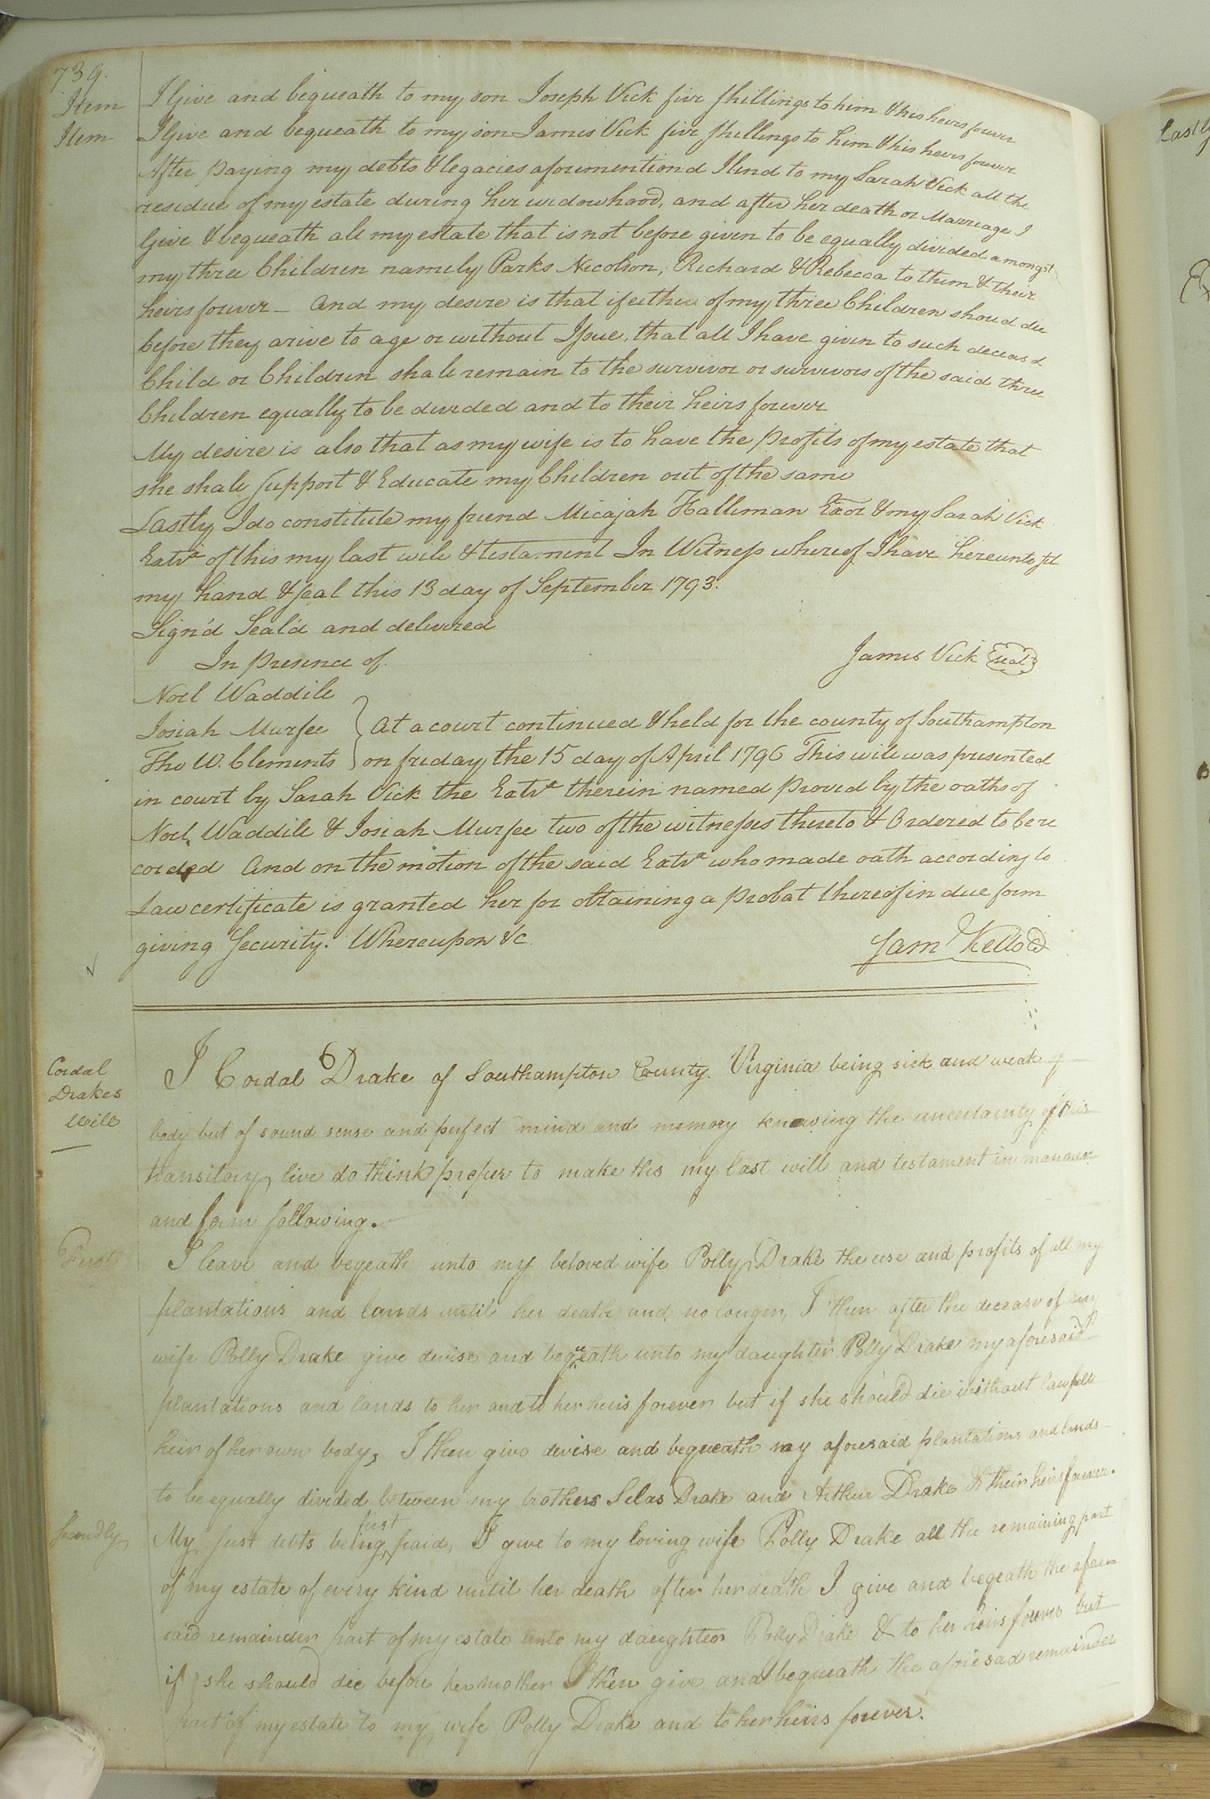 739.
Item I Give and bequeath to my son Joseph Vick five shillings to him & his heirs forever
Item I Give and bequeath to my son James Vick five shillings to him & his heirs forever
After paying my debts & legacies aforementiond I lend to my Sarah Vick all the
residue of my estate during her widowhood, and after her death or Marreage I
Give & bequeath all my estate that is not before given to be equally divided amongst
my three Children namely Parks Necolson, Richard & Rebecca to them & their
heirs forever _ And my desire is that if either of my three Children should die
before they arive to age or without Issue, that all I have given to such deceas'd
Child or Children shall remain to the survivor or survivors of the said three
Children equally to be divided and to their heirs forever
My desire is also that as my wife is to have the profits of my estate that
she shall support & Educate my Children out of the same
Lastly I do constitute my friend Micajah Holliman Exor & my Sarah Vick
Extrx of this my last will & testament In Witness whereof I have hereunto set
my hand & seal this 13 day of September 1793.
Sign'd Seal'd and delivered
In presence of
James Vick Seal
Noel Waddill
Josiah Murfee } At a court continued & held for the county of Southampton
Tho W. Clements } on friday the 15 day of April 1796 This will was presented
in court by Sarah Vick the Extrx therein named proved by the oaths of
Noel, Waddill & Josiah Murfee two of the witnesses thereto & Ordered to be re
corded And on the motion of the said Extrx who made oath according to
Law certificate is granted her for obtaining a probat thereof in due form
giving Security. Whereupon &c
Sam Kello Cl
Cordal
Drakes
Will
I Cordal Drake of Southampton County. Virginia being sick and weak of
body but of sound sense and perfect mind and memory knowing the uncertainty of this
transitory live do think proper to make this my last will and testament in manner
and form following.
First I leave and beqeath unto my beloved wife Polly Drake the use and profits of all my
plantations and lands until her death and no longer, I then after the decease of my
wife Polly Drake give devise and bequeath unto my daughter Polly Drake my aforesaid
plantations and lands to her and to her heirs forever but if she should die without lawfull
heir of her own body, I then give devise and bequeath my aforesaid plantations and lands
to be equally divided between my brothers Silas Drake and Arthur Drake & their heirs forever.
Secondly My just debts being first paid, I give to my loving wife Polly Drake all the remaining part
of my estate of every kind until her death after her death I give and beqeath the afore
said remainder part of my estate unto my daughter Polly Drake & to her heirs forever but
if she should die before her mother I then give and bequeath the aforesad remainder
part of my estate to my wife Polly Drake and to her heirs forever.
Lastly